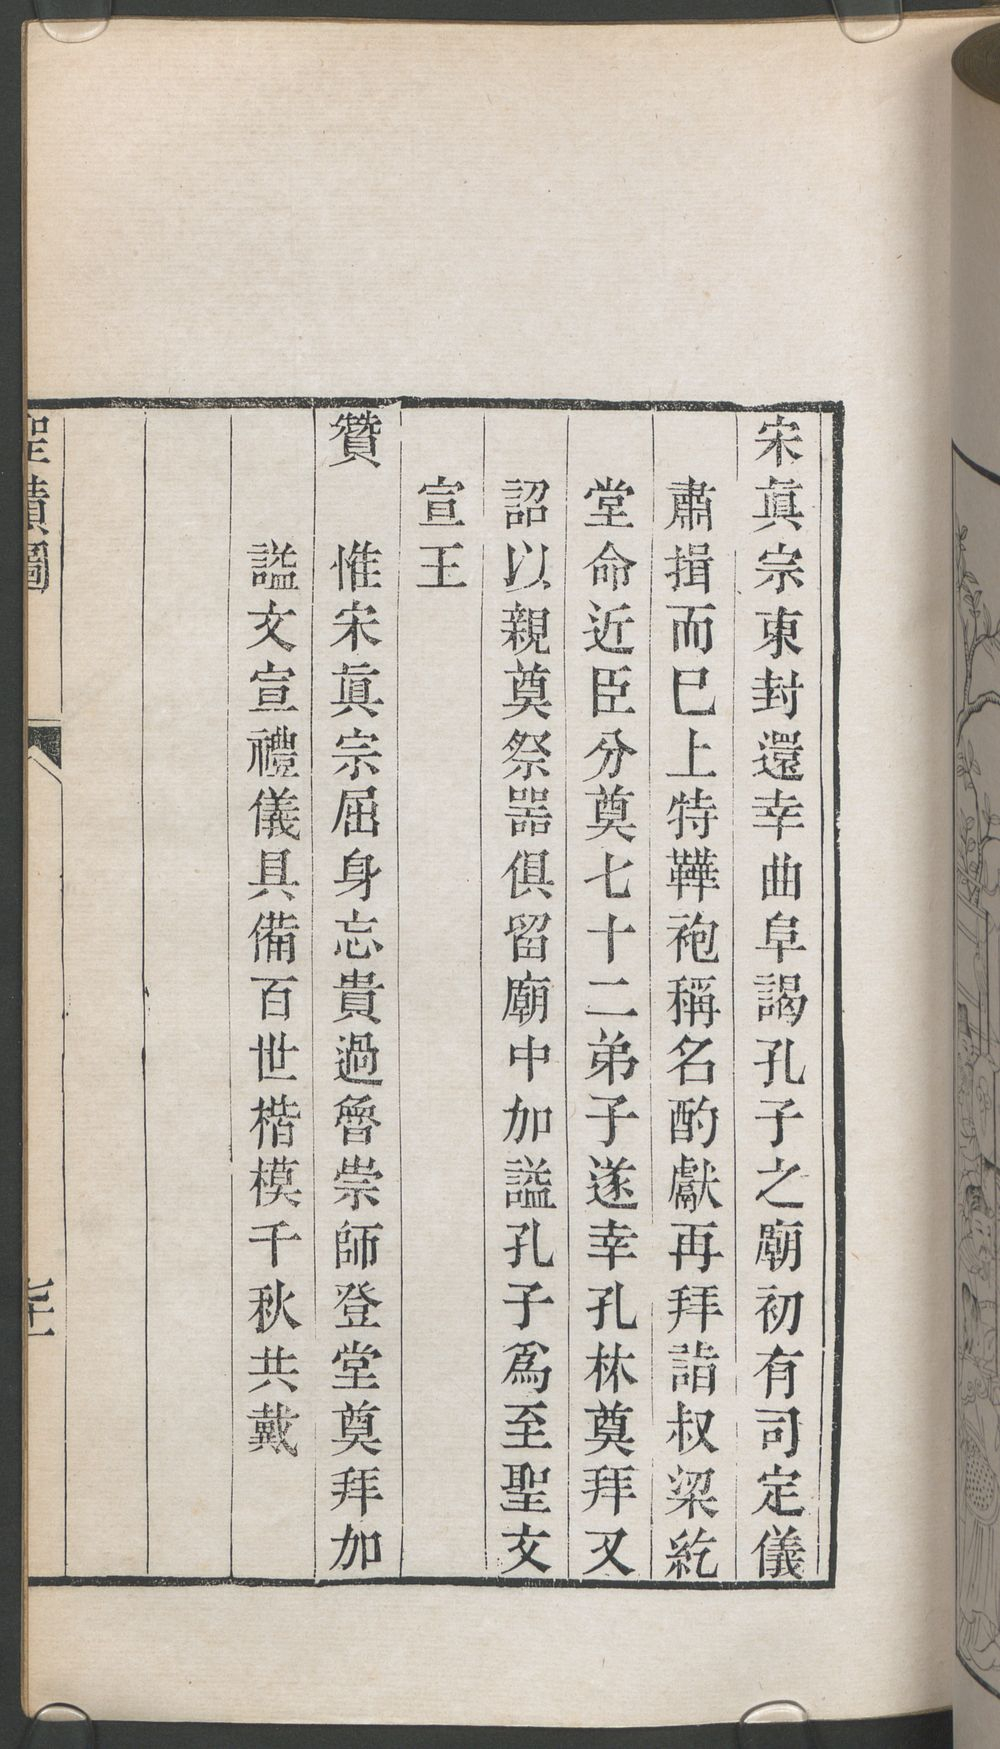 宋眞宗東封還幸曲阜謁孔子之廟初有司定儀
肅揖而巳上特鞾袍稱名酌獻再拜詣叔梁紇
堂命近臣分奠七十二弟子遂幸孔林奠拜又
詔以親奠祭器俱留廟中加謚孔子爲至聖文
宣王
贊　惟宋眞宗屈身忘貴過魯崇師登堂奠拜加
謚文宣禮儀具備百世楷模千秋共戴
聖蹟圖